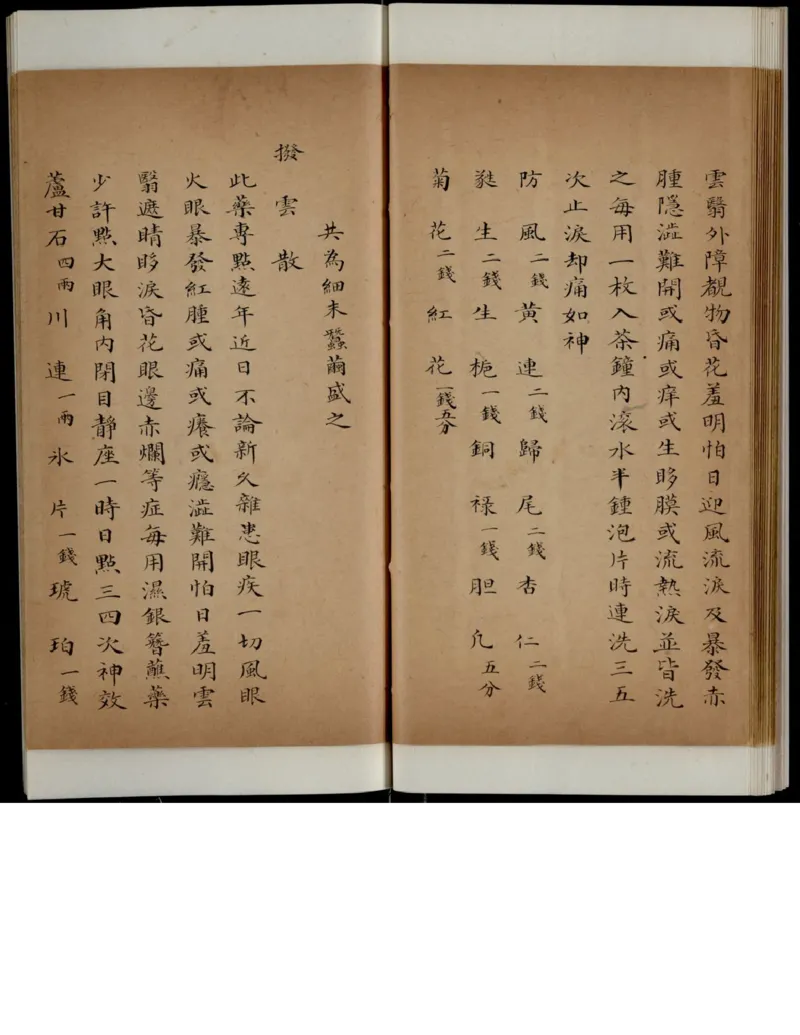 雲翳外障覩物昏花羞明怕日迎風流淚及暴發赤
腫隱澁難開或痛或痒或生眵膜或流熱淚並皆洗
之每用一枚入茶鐘內滾水半鍾泡片時連洗三五
次止淚却痛如神
防風二錢黃連二錢歸尾二錢杏仁二錢
生二錢生梔一錢銅禄一錢胆凡五分
菊花二錢紅花一錢五分
共為細末蠶繭盛之
撥雲散
此藥專點遠年近日不論新久雜患眼疾一切風眼
火眼暴發紅腫或痛或癢或癮澁難開怕日羞明雲
翳遮睛眵淚昏花眼邊赤爛等症每用濕銀簪蘸藥
少許點大眼角內閉目靜座一時日點三四次神效
蘆甘石四兩川連一兩氷片一錢琥珀一錢